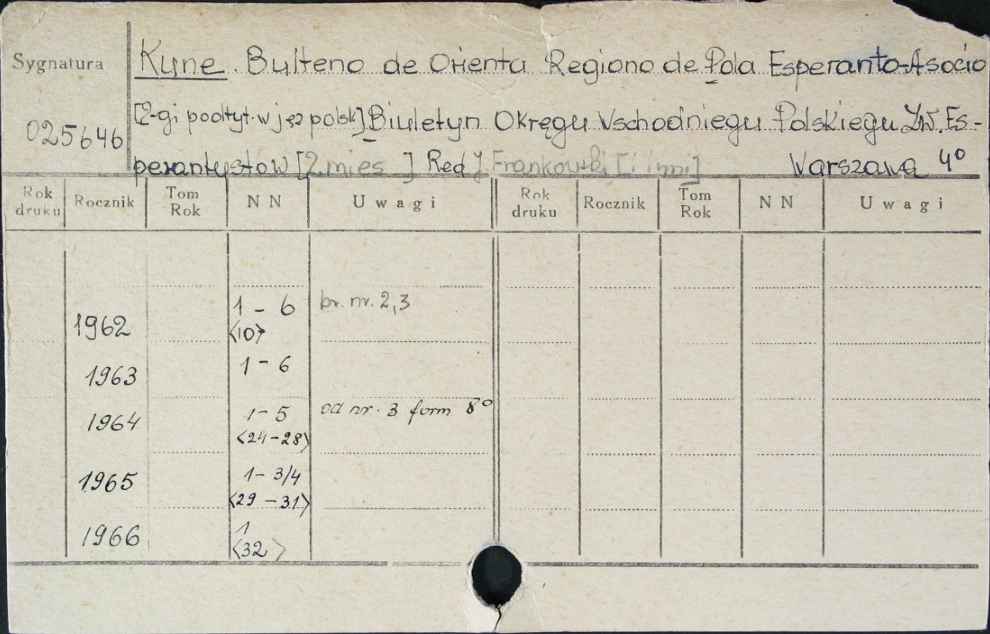 Sygnatura
025646
Kune. Bulteno de Orienta Regiono de Pola Esperanto-Asocio
[2-gi podtyt. w jęz polsk] Biuletyn Okręgu Wschodniego Polskiego Zw. Es-
perantystów [2 mies ] Red J. Frankowski [i inni] Warszawa 4°
Rok druku Rocznik Tom Rok NN Uwagi Rok druku Rocznik Tom Rok NN Uwagi
1962 1 - 6 br. nr. 2,3
<10>
1963 1 - 6
1964 1 - 5 od nr. 3 form 8°
<24-28>
1965 1 - 3/4
<29 - 31>
1966 1
<32 >